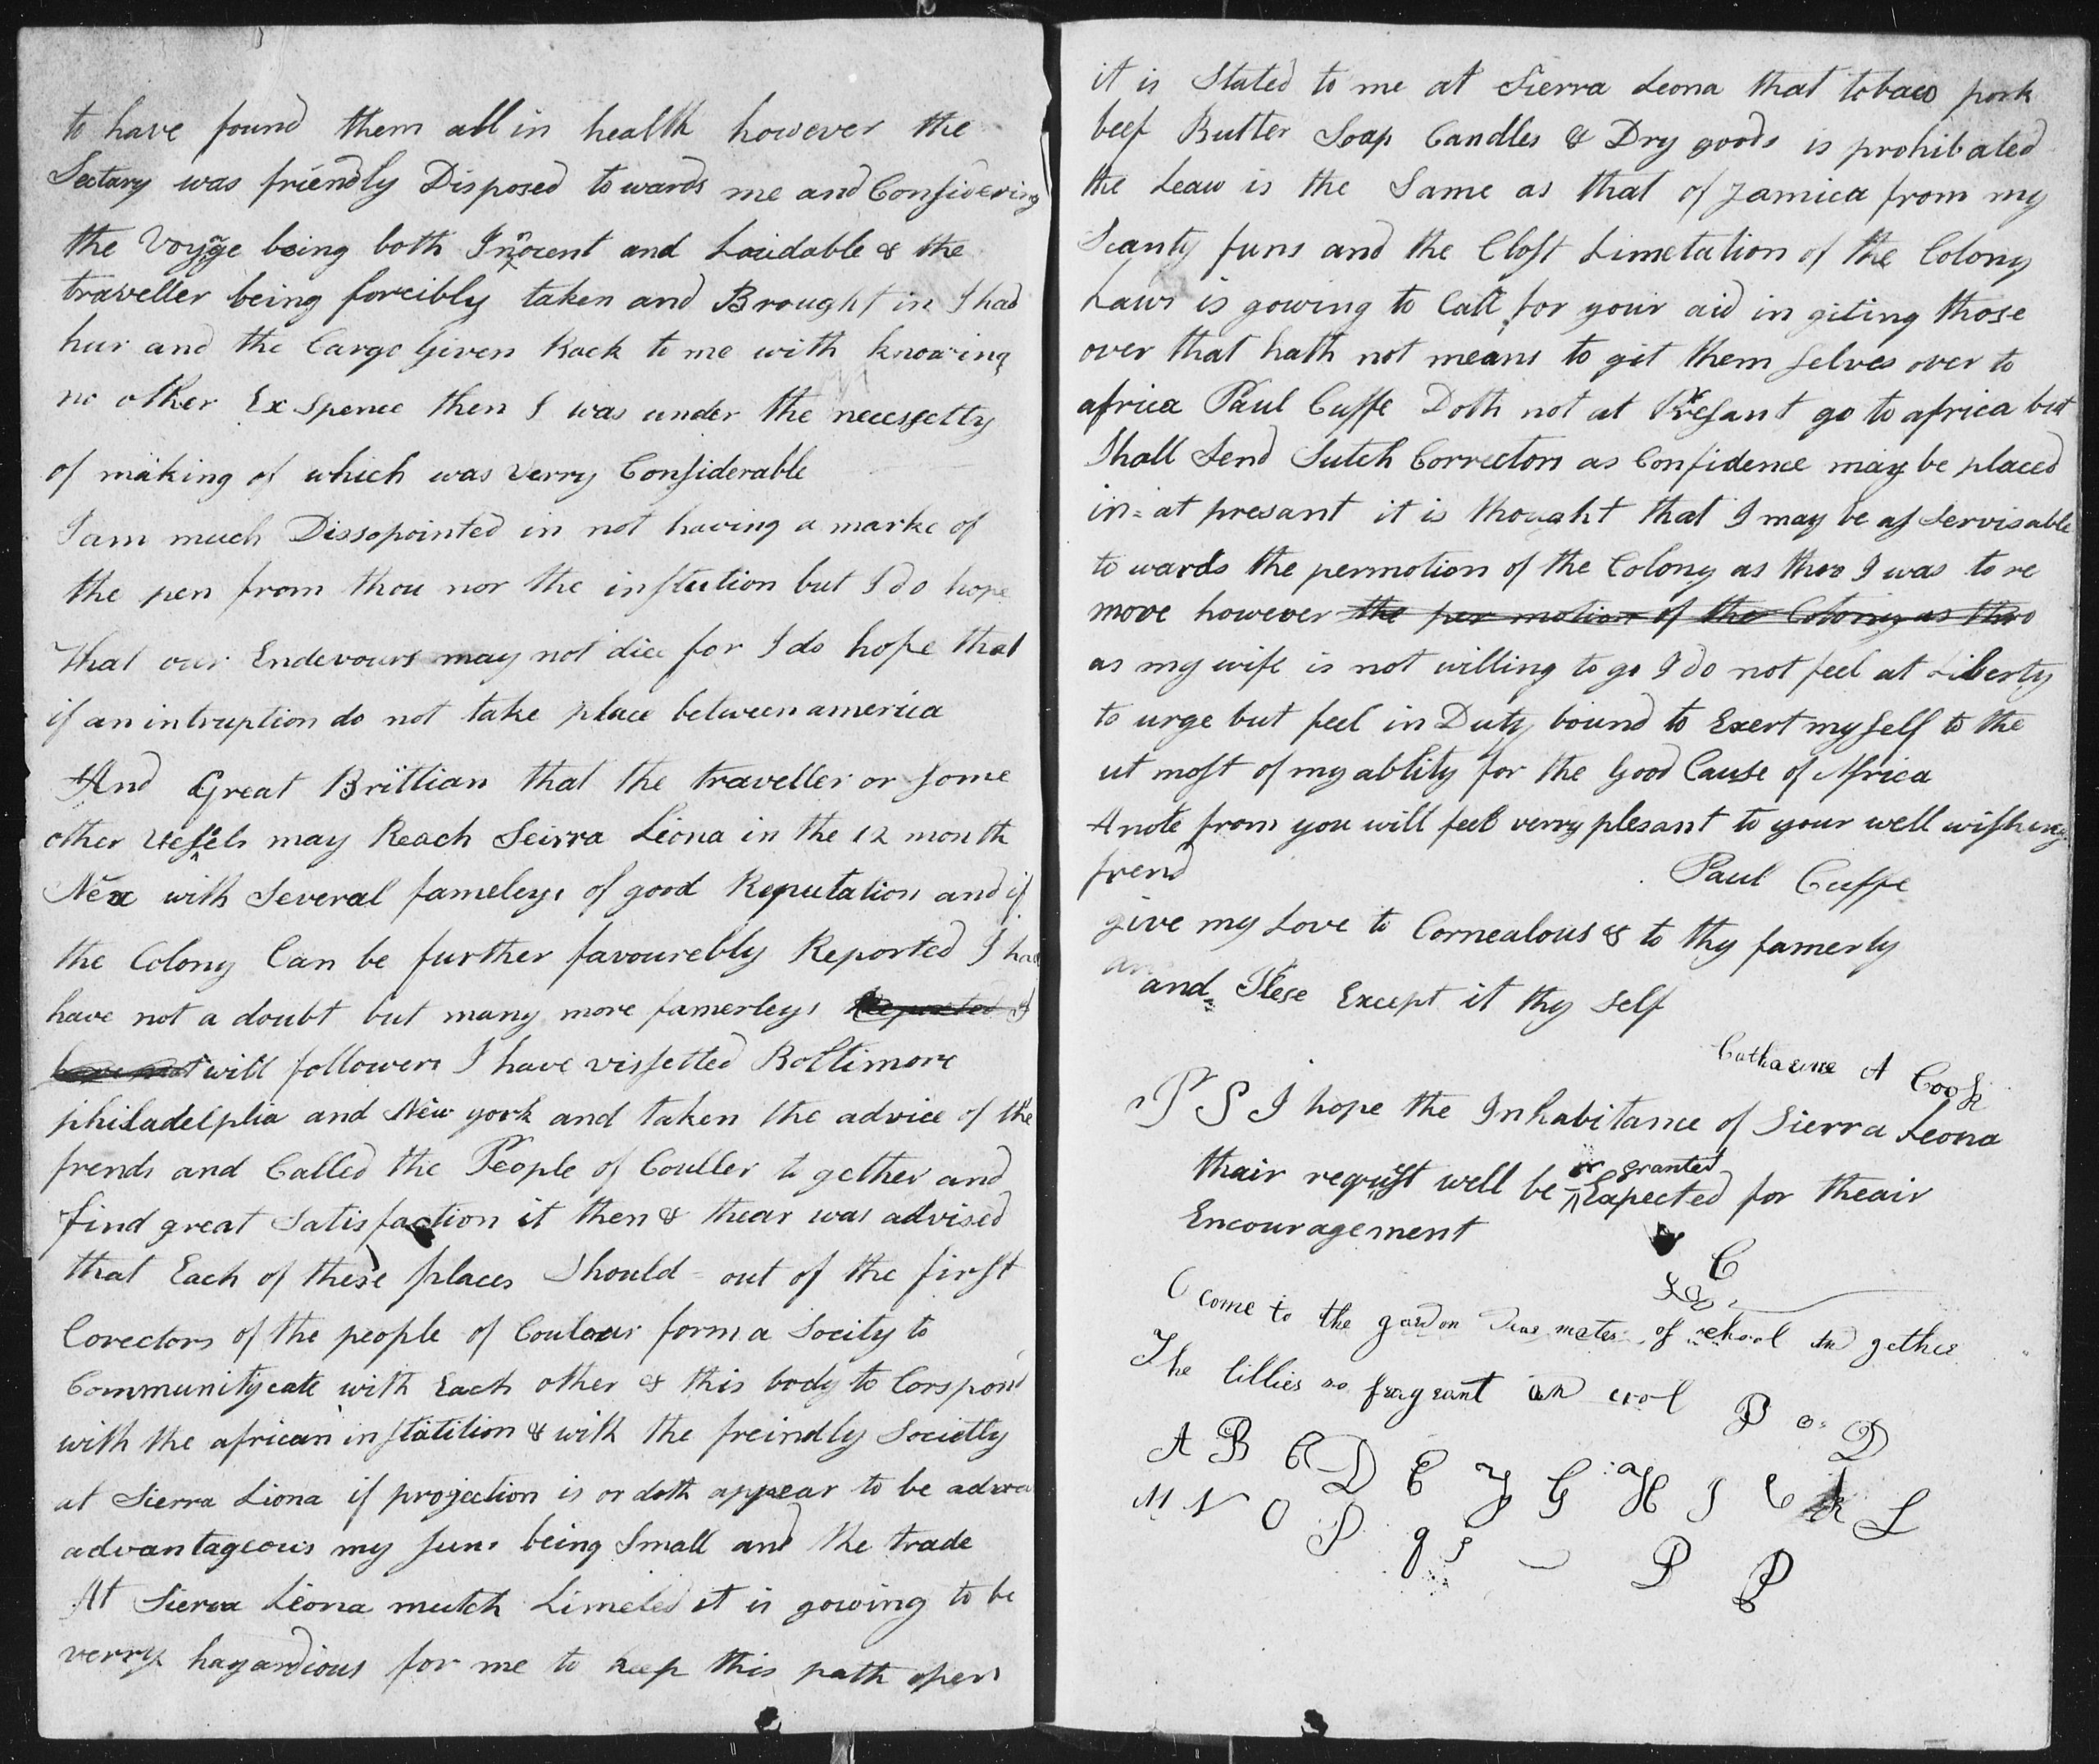 to have found them all in health however the
Sectary was friendly Disposed to wards me and Considering
the Voyage being both Innocent and Laudable & the
traveller being forcibly taken and Brought in I had
hur and the Cargo Given Back to me with knowing
no other Ex Spence then I was under the necessetty
of making of which was verry Considerable
I am much Dissopointed in not having a marke of
the pen from thou nor the instution but I do hope
that our Endevours may not die for I do hope that
if an intruption do not take place between america
And Great Brittian that the traveller or some
other Vessels may Reach Seirra Leona in the 12 month
Nex with Several fameleys of good Reputation and if
the Colony Can be further favourebly Reported I have
have not a doubt but many more famerleys Reported I
have not will followers I have vissetted Boltimore
philadelphia and New york and taken the advice of the
frends and Called the People of Couller to gether and
find great Satisfaction it then & thear was advised
that Each of these places Should = out of the first
Corectors of the people of Coulour form a Socity to
Communitycate with Each other & this body to Corspond
with the african instatition & with the freindly Socielty
at Sierra Liona if projection is or doth appear to be adva
advantageous my funs being Small and the trade
At Sierra Leona mutch Limeted it is gowing to be
verry hazardious for me to keep this path open
it is Stated to me at Sierra Leona that tobaco pork
beef Butter Soap Candles & Dry goods is prohibated
the Leaw is the Same as that of Jamica from my
Scanty funs and the Clost Limetation of the Colony
Laws is gowing to Call for your aid in giting those
over that hath not means to git them selves over to
africa Paul Cuffe Doth not at Presant go to africa but
Shall Send Sutch Correctors as Confidence may be placed
in = at presant it is thought that I may be as Servisable
to wards the permotion of the Colony as thoo I was to re
move however the per motion of the Colony as thro
as my wife is not willing to go I do not feel at Liberty
to urge but feel in Duty bound to Exert my self to the
ut most of my ablity for the Good Cause of Africa
A note from you will feel verry plesant to your well wishing
frend
Paul Cuffe
give my Love to Cornealous & to thy famerly
and Plese Except it thy Self
Catharine A Cook
P S I hope the Inhabitance of Sierra Leona
thair request well be or granted Expected for theair
Encouragement
C
O come to the garden Dear mates of school
The lillies so fragrant and cool
P o D
A B C D E F G H I K L
M N O P q s P P